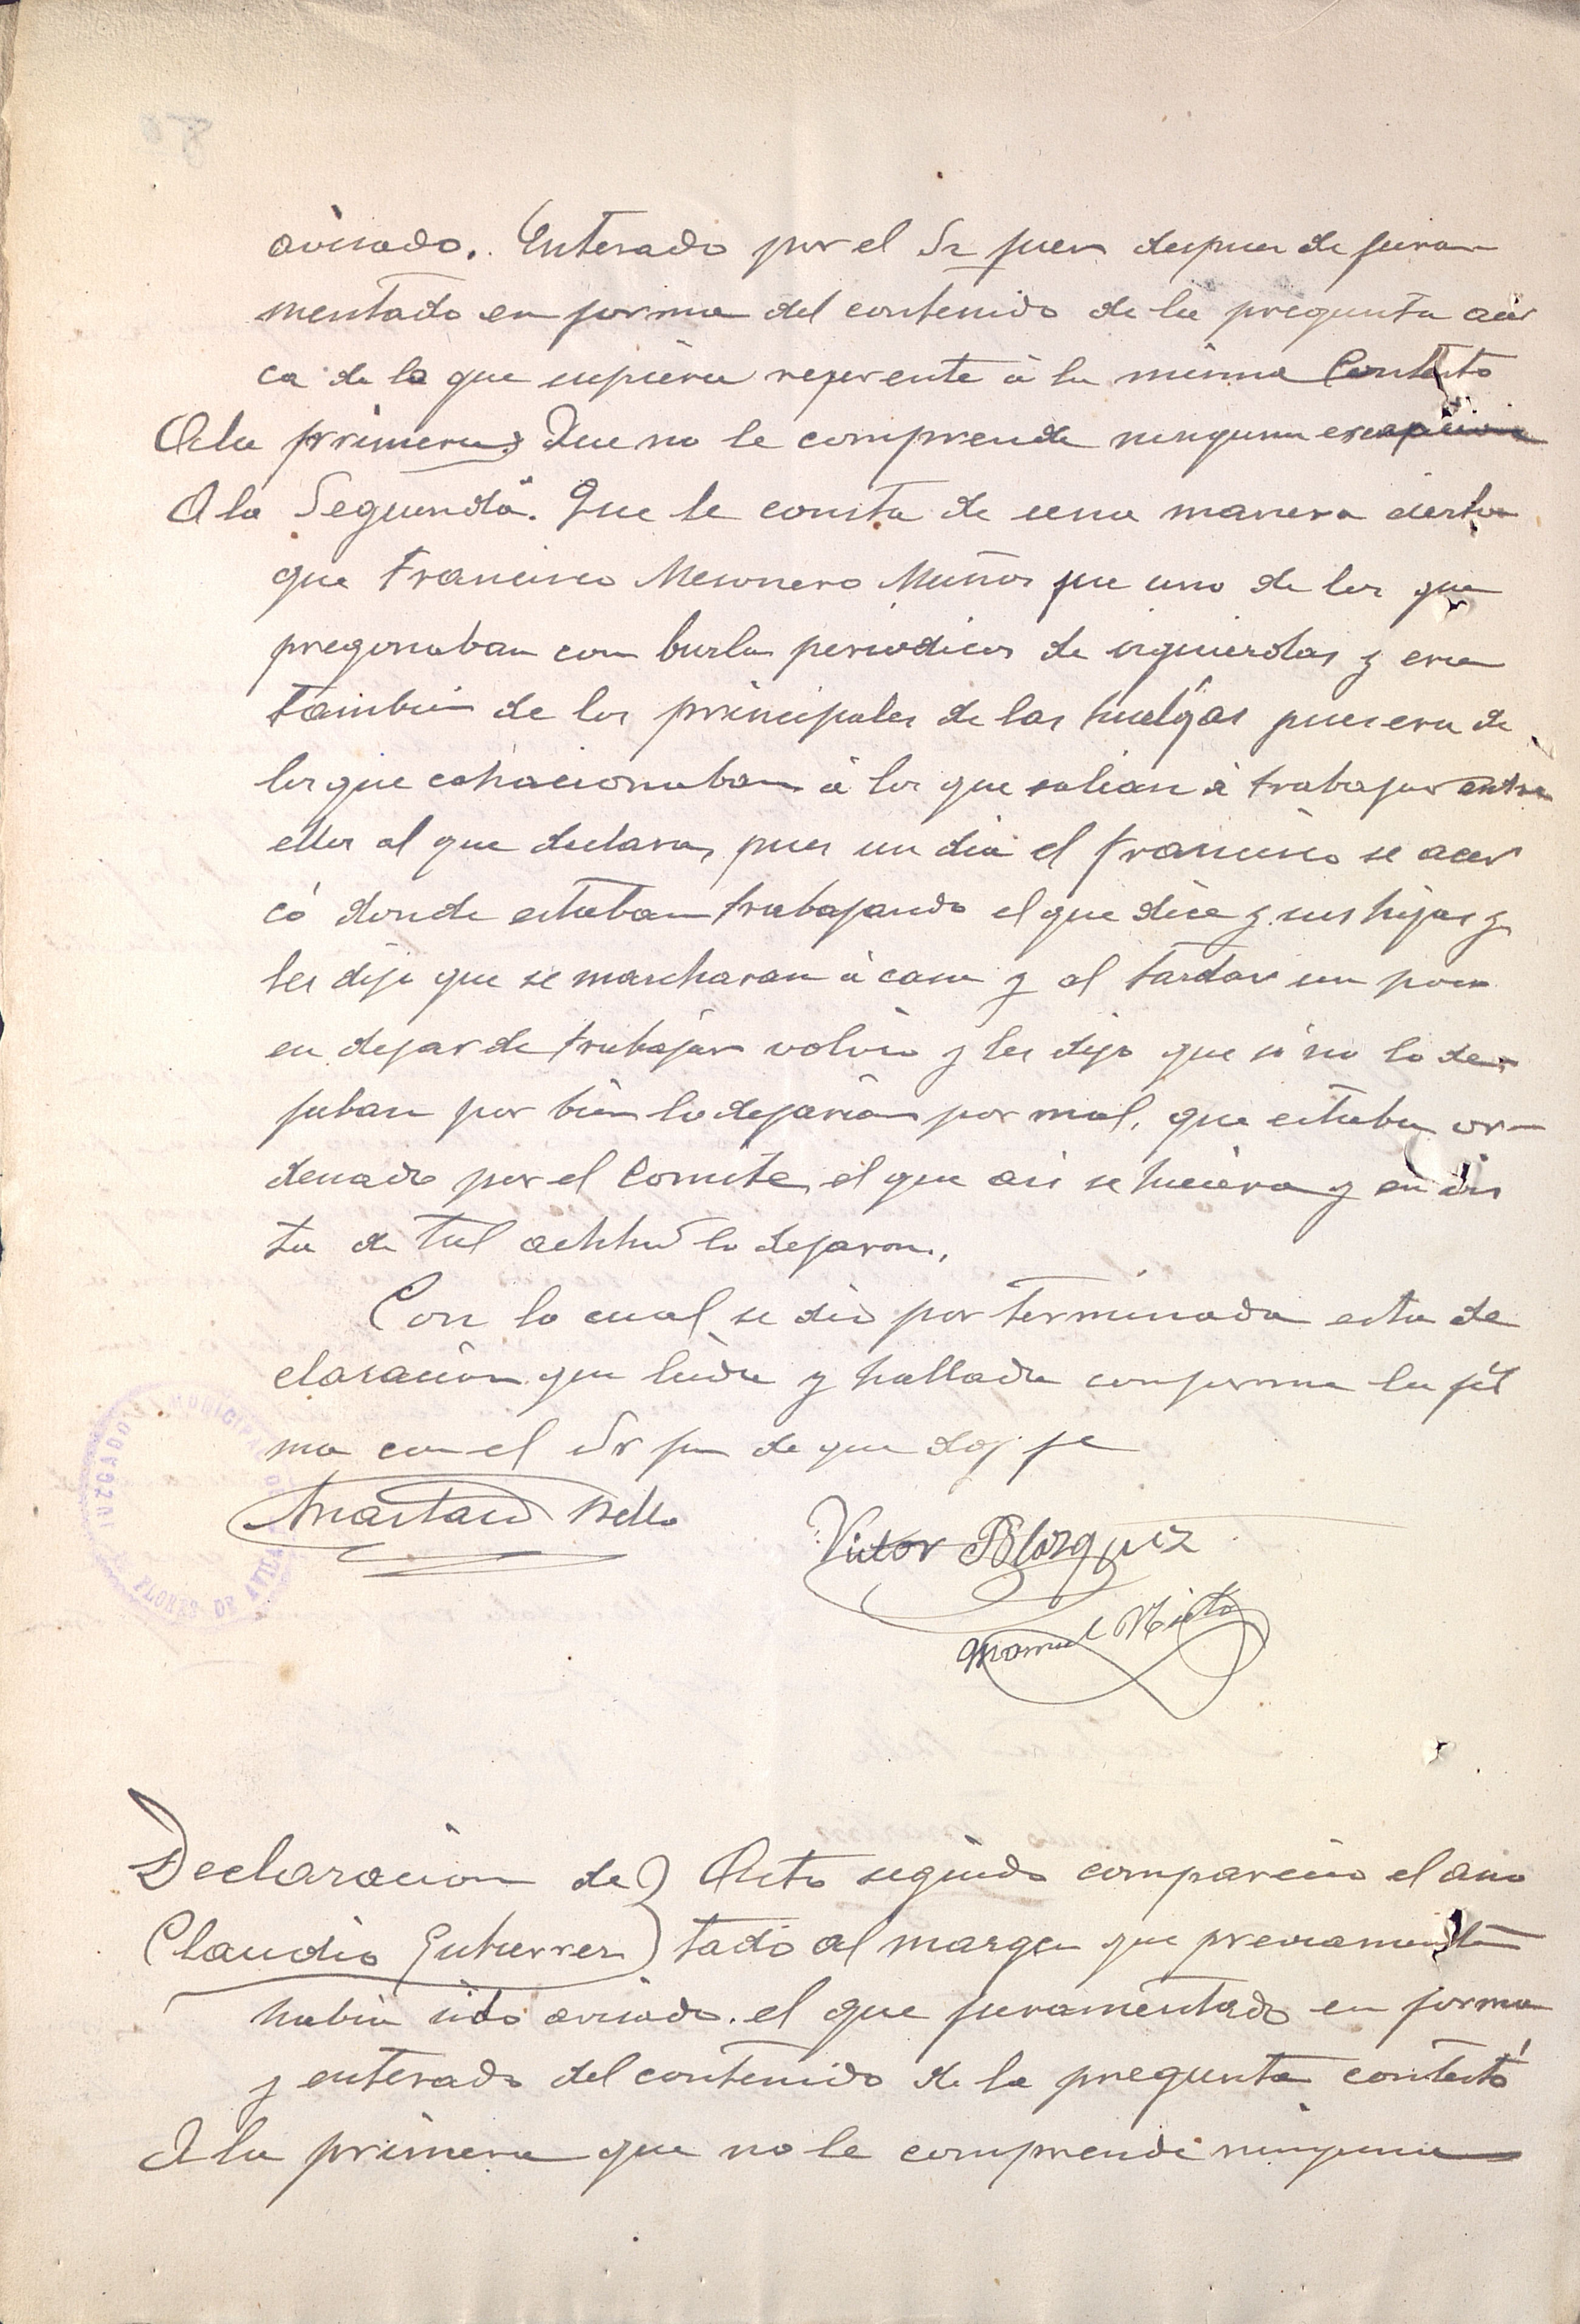 avisado. Enterado por el Sr juez despues de jura
mentado en forma del contenido de la pregunta acer
ca de lo que supiera referente á la misma Contesto
A la primera: Que no le comprende ninguna excepcion
A la Segunda. Que le consta de una manera cierta
que Francisco Mesonero Muñoz fue uno de los que
pregonaban con burla periodicos de izquierdas y era
tambien de los principales de las huelgas pues era de
los que cohacionaban á los que salian á trabajar entre
ellos al que declara, pues un dia el francisco se acer
có donde estaban trabajando el que dice y sus hijos y
les dijo que se marcharan á casa y al tardar un poco
en dejar de trabajar volvio y les dijo que si no lo de
jaban por bien lo dejarian por mal, que estaba or-
denado por el Comite, el que asi se hiciera y en vis
ta de tal actitud lo dejaron.
Con lo cual se dio por terminada esta de
claracion que leida y hallada conforme la fir
ma con el Sr juez de que doy fe
Anastasio Bello
Victor Blazquez
Manuel Nieto
JUZGADO MUNICIPAL DE
FLORES DE AVILA
Declaracion de Acto seguido comparecio el ano
Claudio Gutierrez tado al margen que previamente
habia sido avisado. el que juramentado en forma
y enterado del contenido de la pregunta contestó
A la primera que no le comprende ninguna